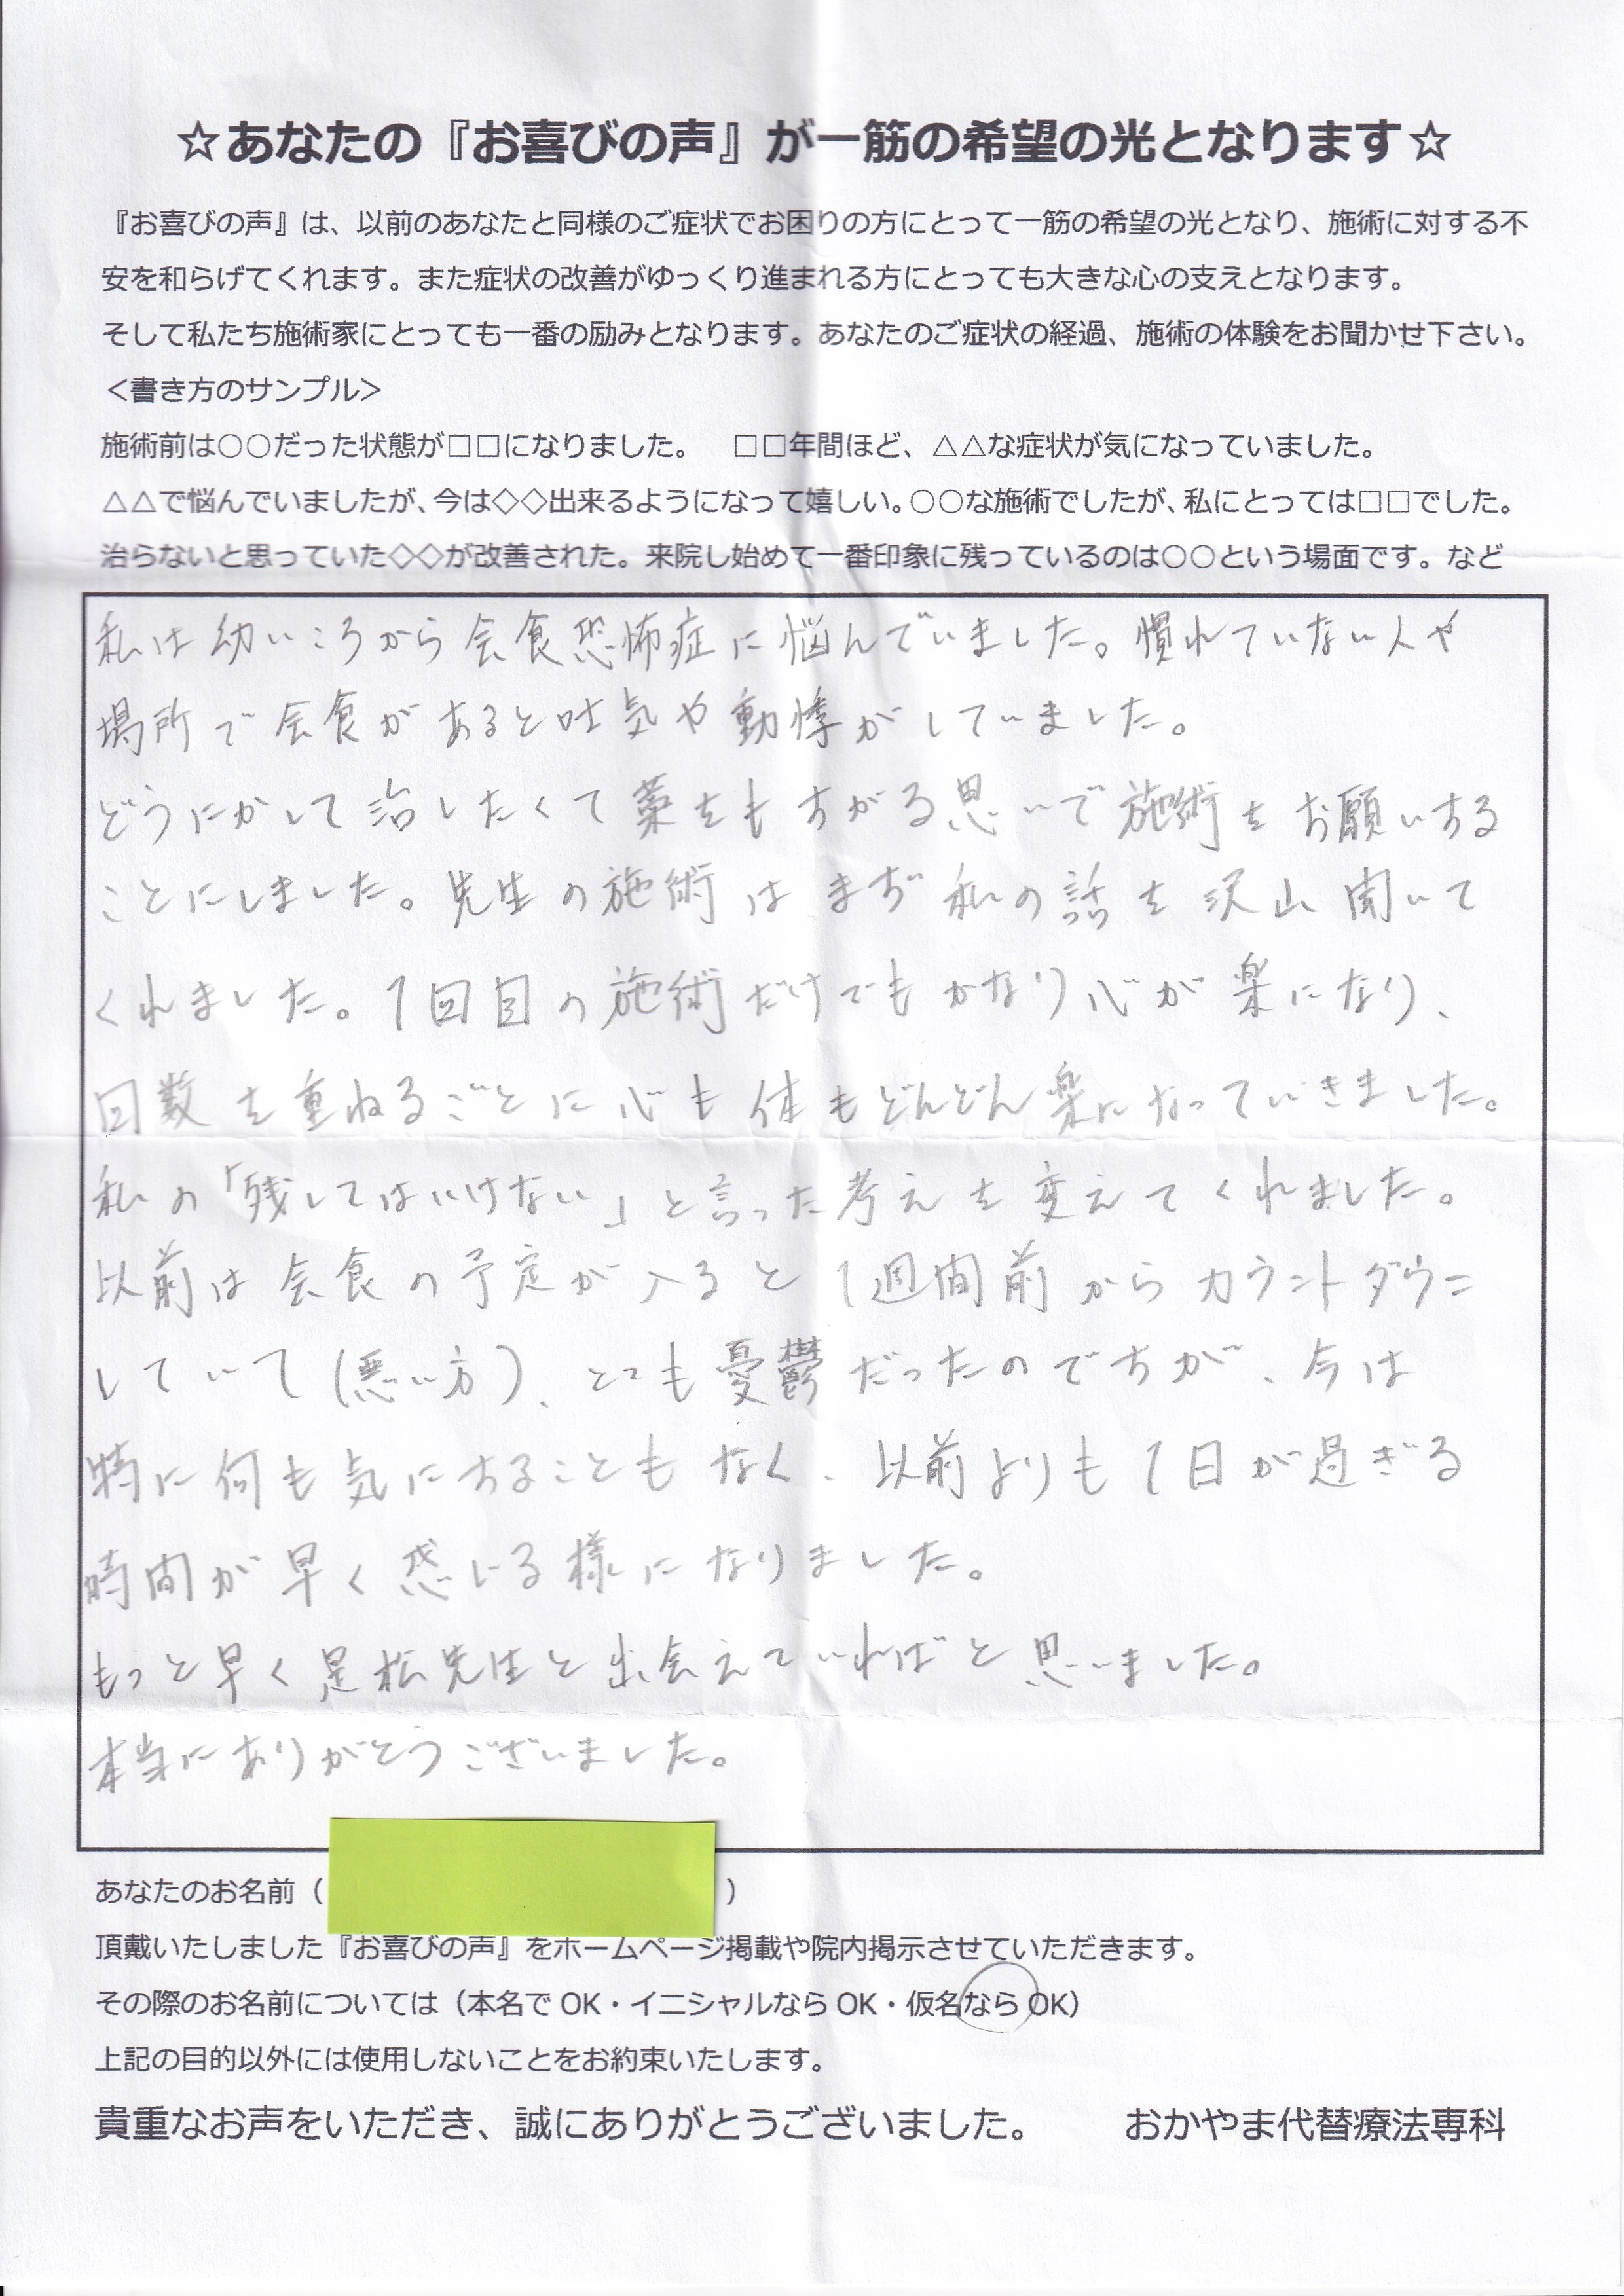 ☆あなたの『お喜びの声』が一筋の希望の光となります☆
『お喜びの声』は、以前のあなたと同様のご症状でお困りの方にとって一筋の希望の光となり、施術に対する不
安を和らげてくれます。また症状の改善がゆっくり進まれる方にとっても大きな心の支えとなります。
そして私たち施術家にとっても一番の励みとなります。あなたのご症状の経過、施術の体験をお聞かせ下さい。
＜書き方のサンプル＞
施術前は○○だった状態が□□になりました。　□□年間ほど、△△な症状が気になっていました。
△△で悩んでいましたが、今は◇◇出来るようになって嬉しい。○○な施術でしたが、私にとっては□□でした。
治らないと思っていた◇◇が改善された。来院し始めて一番印象に残っているのは○○という場面です。など
私は幼いころから会食恐怖症に悩んでいました。慣れていない人や
場所で会食があると吐気や動悸がしていました。
どうにかして治したくて藁をもすがる思いで施術をお願いする
ことにしました。先生の施術はまず私の話を沢山聞いて
くれました。1回目の施術だけでもかなり心が楽になり、
回数を重ねるごとに心も体もどんどん楽になっていきました。
私の「残してはいけない」と言った考えを変えてくれました。
以前は会食の予定が入ると1週間前からカウントダウン
していて(悪い方)、とても憂鬱だったのですが、今は
特に何も気にすることもなく、以前よりも1日が過ぎる
時間が早く感じる様になりました。
もっと早く是松先生と出会えていればと思いました。
本当にありがとうございました。
あなたのお名前（　）
頂戴いたしました『お喜びの声』をホームページ掲載や院内掲示させていただきます。
その際のお名前については（本名でOK・イニシャルならOK・仮名ならOK）
上記の目的以外には使用しないことをお約束いたします。
貴重なお声をいただき、誠にありがとうございました。　おかやま代替療法専科